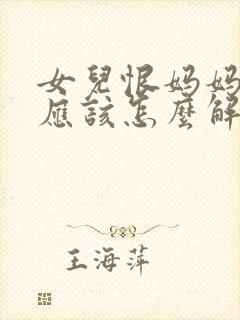 女兒恨媽媽
應該怎麼解
王海萍